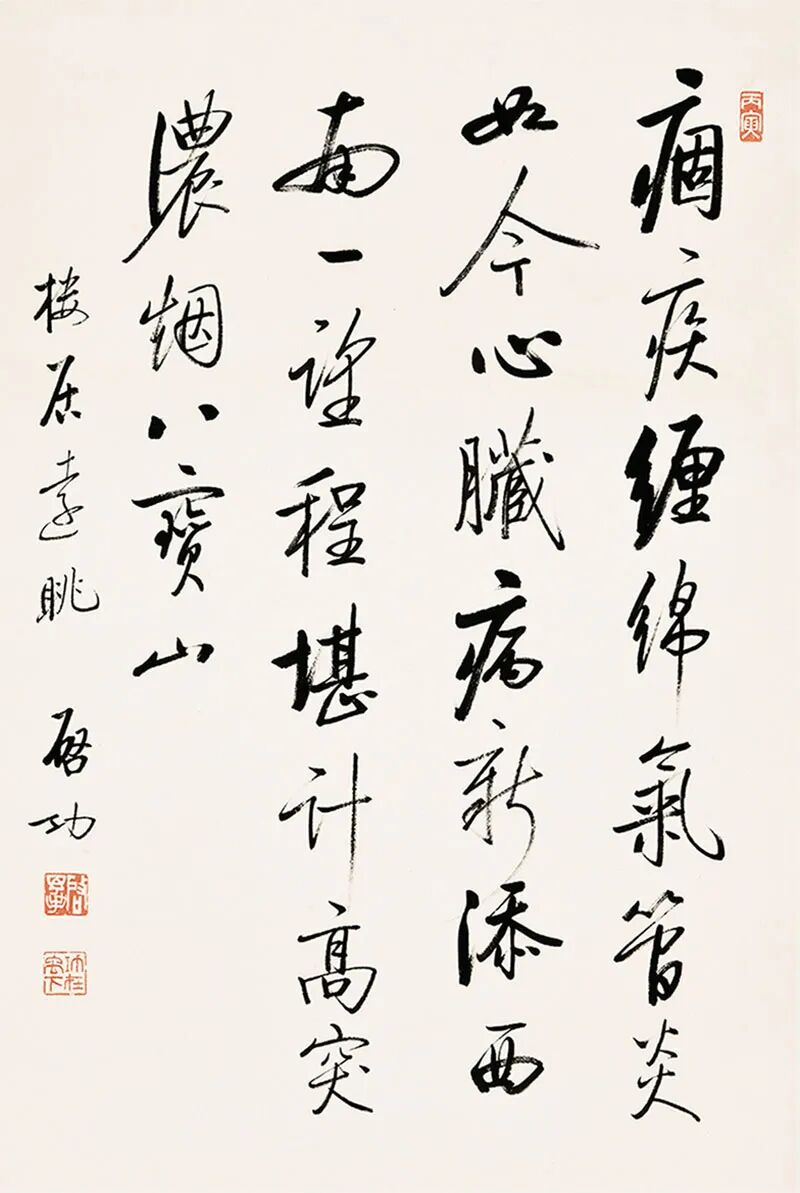 痼疾缠绵氣管炎
如今心臟病新添西
南一望程堪計高突
濃烟八寶山
楼居遠眺 启功
丙寅